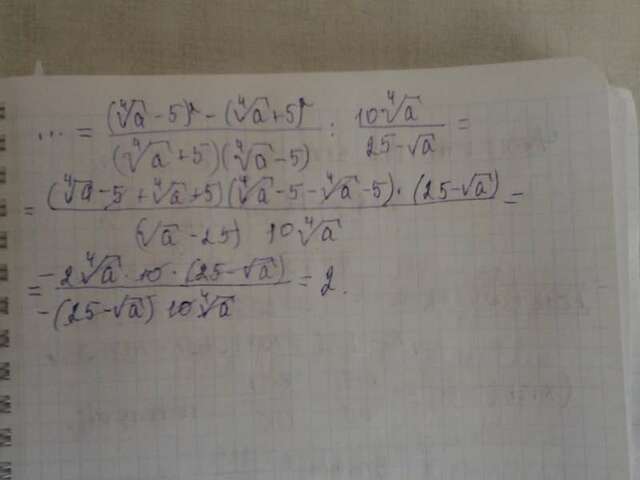 ... = ((⁴√a - 5)² - (⁴√a + 5)²) / ((⁴√a + 5)(⁴√a - 5)) : (10⁴√a) / (25 - √a) =
= ((⁴√a - 5 + ⁴√a + 5)(⁴√a - 5 - ⁴√a - 5) · (25 - √a)) / ((√a - 25) 10⁴√a) =
= (-2⁴√a · 10 · (25 - √a)) / (-(25 - √a) 10⁴√a) = 2.